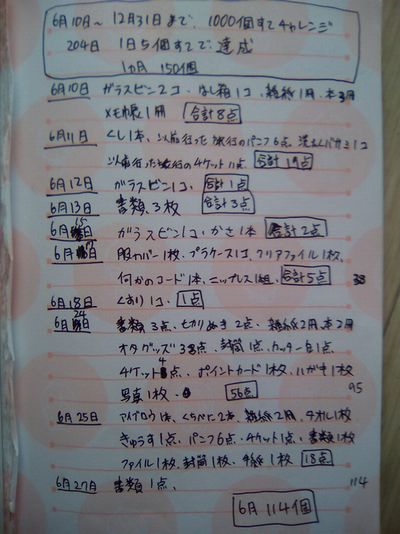 6月10日〜12月31日まで、1000個すてチャレンジ
204日 1日5個すてで達成
1ヵ月 150個
6月10日 ガラスビン2コ、はし箱1コ、雑紙1冊、本3冊
メモ帳1冊 合計8点
6月11日 くし1本、以前行った旅行のパンフ6点、洗たくバサミ1コ
以前行った旅行のチケット11点、合計19点
6月12日 ガラスビン1コ、合計1点
6月13日 書類3枚 合計3点
6月15日 ガラスビン1コ、かさ1本 合計2点
6月 日 服カバー1枚、プラケース1コ、クリアファイル1枚、
何かのコード1本、ニップレス1組、合計5点 38
6月18日 くすり1コ、1点
6月24日 書類3点、切りぬき2点、雑紙2冊、本2冊
オタグッズ38点、封筒1点、カッター台1点
チケット4点、ポイントカード1枚、ハガキ1枚
写真1枚、 56点 95
6月25日 アイブロウ1本、くちべに2本、雑紙2冊、タオル1枚
きゅうす1点、パンフ6点、チケット1点、書類1枚
ファイル1枚、封筒1枚、手紙1枚 18点
6月27日 書類1点、 114
6月 114個